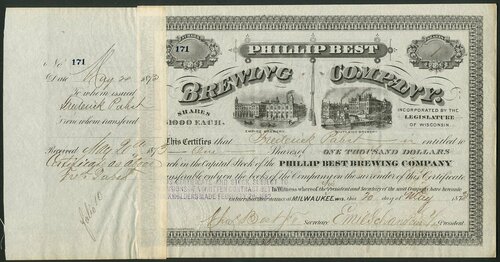 No 171
Date May 20 1873
To whom issued
Frederick Pabst
From whom transferred
Received May 20 1873
Certificate as above
Fred Pabst
NUMBER
171
SHARES
PHILLIP BEST
BREWING COMPANY.
SHARES
$1000 EACH.
EMPIRE BREWERY.
SOUTH SIDE BREWERY.
INCORPORATED BY THE
LEGISLATURE
OF WISCONSIN.
This Certifies that Frederick Pabst is entitled to
One Share of ONE THOUSAND DOLLARS
each in the Capital Stock of the PHILLIP BEST BREWING COMPANY
transferable only on the books of the Company on the surrender of this Certificate
In Witness whereof the President and Secretary of the said Company have hereunto
MILWAUKEE, WIS. this 20 day of May 1873
Secretary Emil Schandein President